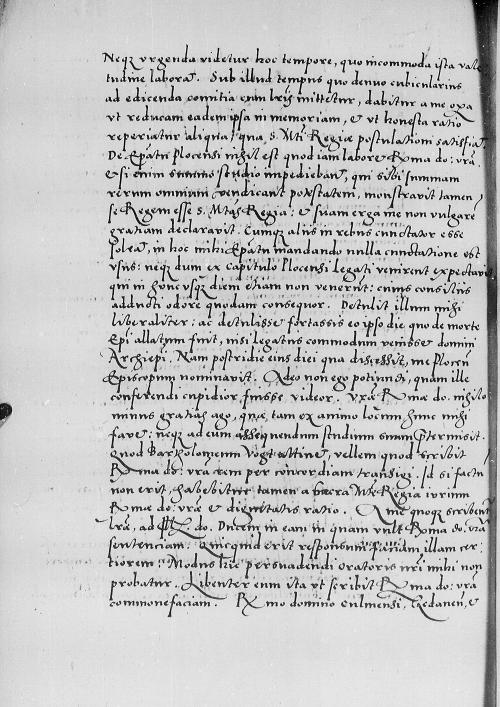 Neq₃ vrgenda videtur hoc tempore, quo incommoda ista vale
tudine laborat. Sub illud tempus quo denuo cubicularius
ad edicenda comitia cum lris mittetur, dabitur a me opa
vt reducam eadem ipsa in memoriam, & vt honesta ratio
reperiatur aliqua, qua S. Mti Regiæ postulationi satisfiat.
De Epatu Plocensi nihil est quod iam labore Rma do: vra
& si enim summo studio impediebant, qui sibi summam
rerum omnium vendicant potestatem, monstravit tamen
se Regem esse S. Mtas Regia: & suam erga me non vulgare
gratiam declaravit. Cumq₃ aliis in rebus cunctator esse
soleat, in hoc mihi Epatu mandando nulla cunctatione est
vsus: neq₃ dum ex capitulo Plocensi legati venirent expectavit
qui in hunc vsq₃ diem etiam non venerut: cuius consilii
adducti odore quodam consequor. Detulit illum mihi
liberaliter: ac detulisse fortassis eo ipso die quo de morte
Epi allatum fuit, nisi legatus commodum venisse domini
Archiepi. Nam postridie eius diei qua discessit, me Plocen
Episcopum nominavit. Adeo non ego potiundi, quam ille
conferendi cupidior fuisse videor. Vræ Rmæ do. nihilo
minus gratias ago, quæ tam ex animo locum hunc mihi
favet: neq₃ ad eum assequendum studium suum ptermisit.
Quod Bartholomeum Vogt attinet, vellem quod scribit
Rma do: vra rem per concordiam transigi. Id si factu
non erit, habebitur tamen a sacra Mte Regia iurium
Rmæ do: vræ & dignitatis ratio. A me quoq₃ scribent
lræ, ad Ill. do. Ducem in eam in quam vult Rma do. vra
sententiam: quicquid erit responsum faciam illam cer:
tiorem. Modus hic persuadendi oratoris nri mihi non
probatur. Libenter eum ita vt scribit Rma do: vra
commonefaciam. Rmo domino Culmensi, Gedanen, &